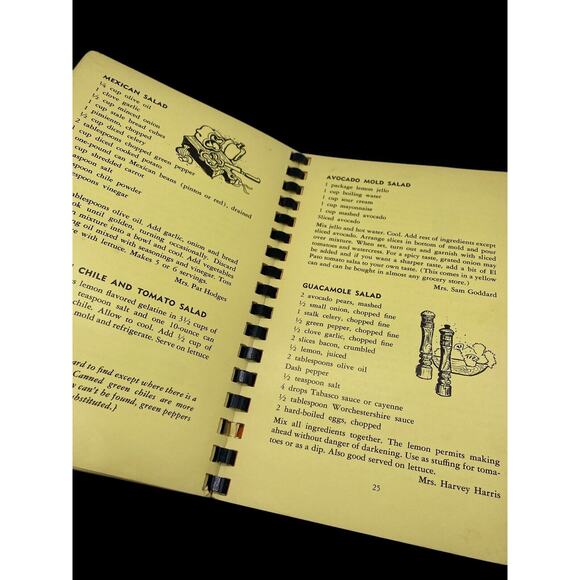 MEXICAN SALAD
¼ cup olive oil
1 clove garlic
½ cup minced onion
1 cup stale bread cubes
1 pimiento, chopped
½ cup diced celery
2 tablespoons chopped green pepper
1 cup diced cooked potato
one-pound can Mexican beans (pintos or red), drained
cup shredded carrot
teaspoon salt
chile powder
espoons vinegar
blespoons olive oil. Add garlic, onion and bread
ook until golden, turning occasionally. Discard
mixture into a bowl and cool. Add vegetables
ing oil mixed with seasonings and vinegar. Toss
e with lettuce. Makes 5 or 6 servings.
Mrs. Pat Hodges
CHILE AND TOMATO SALAD
s lemon flavored gelatine in 3½ cups of
teaspoon salt and one 10-ounce can
chile. Allow to cool. Add ½ cup of
mold and refrigerate. Serve on lettuce
ard to find except where there is a
Canned green chiles are more
can't be found, green peppers
bstituted.)
AVOCADO MOLD SALAD
1 package lemon jello
1 cup boiling water
1 cup sour cream
1 cup mayonnaise
1 cup mashed avocado
Sliced avocado
Mix jello and hot water. Cool. Add rest of ingredients except
sliced avocado. Arrange slices in bottom of mold and pour
over mixture. When set, turn out and garnish with sliced
tomatoes and watercress. For a spicy taste, grated onion may
be added and if you want a sharper taste, add a bit of El
Paso tomato salsa to your own taste. (This comes in a yellow
can and can be bought in almost any grocery store.)
Mrs. Sam Goddard
GUACAMOLE SALAD
2 avocado pears, mashed
½ small onion, chopped fine
1 stalk celery, chopped fine
½ green pepper, chopped fine
½ clove garlic, chopped fine
2 slices bacon, crumbled
½ lemon, juiced
2 tablespoons olive oil
Dash pepper
½ teaspoon salt
4 drops Tabasco sauce or cayenne
½ tablespoon Worchestershire sauce
2 hard-boiled eggs, chopped
Mix all ingredients together. The lemon permits making
ahead without danger of darkening. Use as stuffing for toma-
toes or as a dip. Also good served on lettuce.
Mrs. Harvey Harris
25